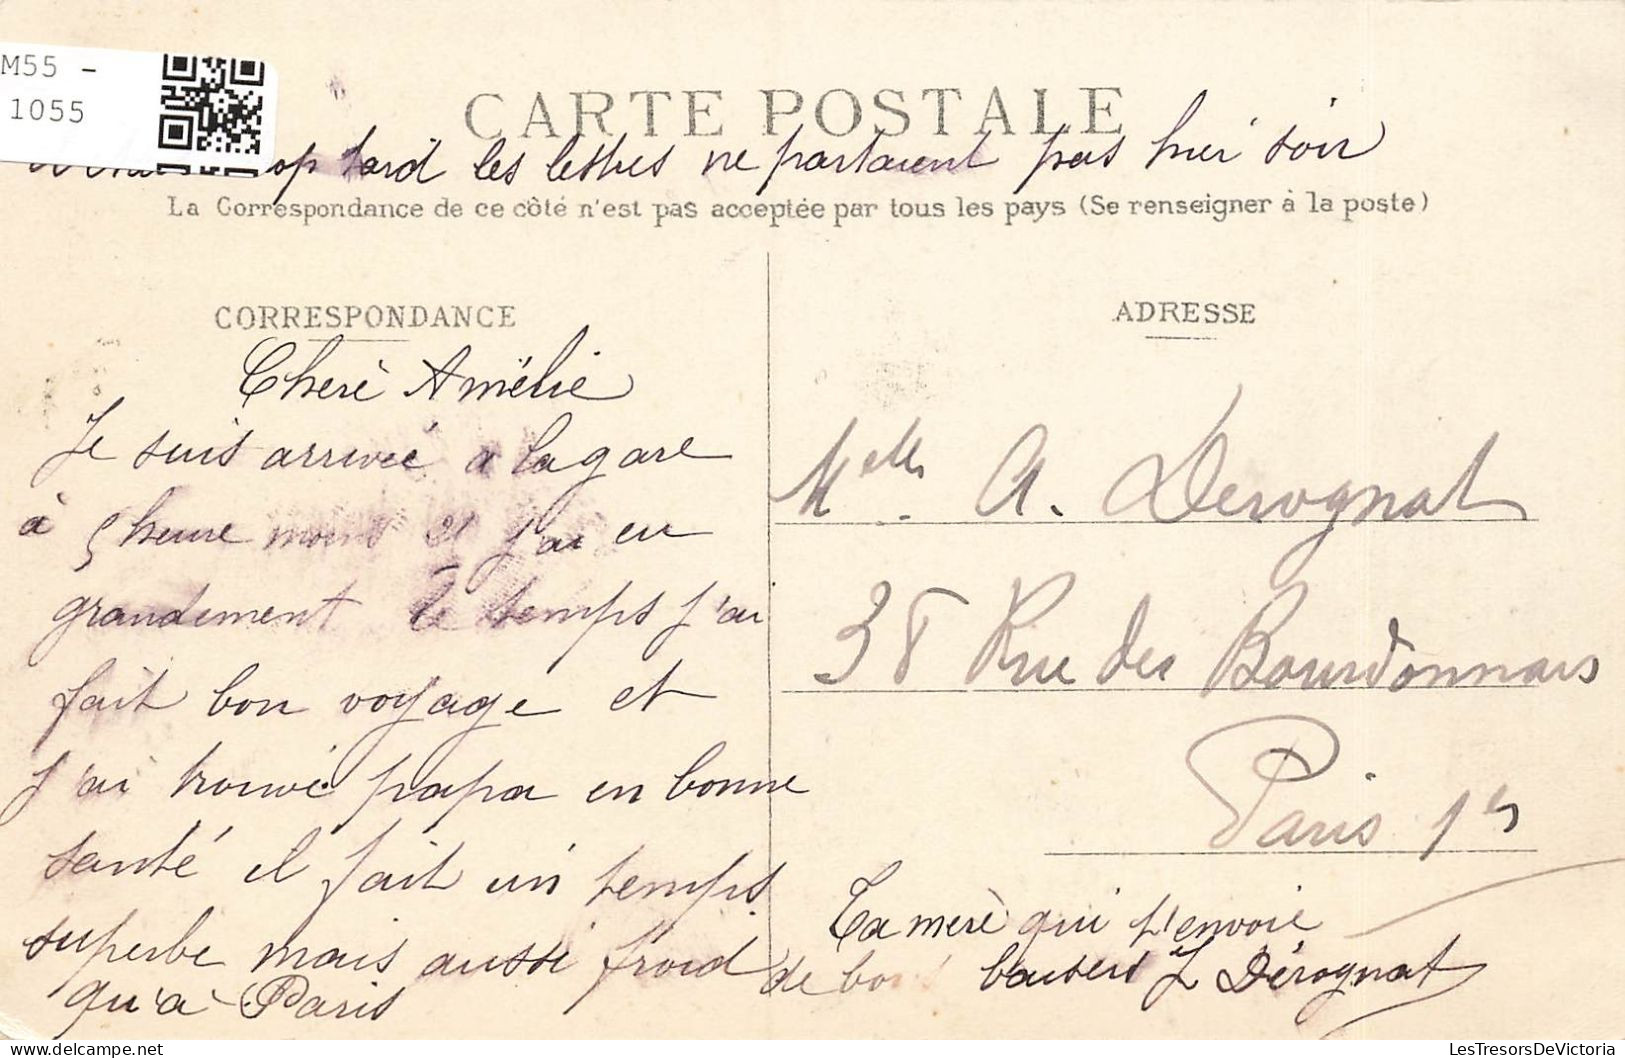 M55 -
1055
CARTE POSTALE
tard les lettres ne partaient pas hier soir
La Correspondance de ce côté n'est pas acceptée par tous les pays (Se renseigner à la poste)
CORRESPONDANCE
Cherè Amélie
Je suis arrivée a la gare
à 5 heure moins 21 j'ai eu
grandement le temps j'ai
fait bon voyage et
j'ai trouvé papa en bonne
santé il fait un temps
superbe mais aussi froid
qu'a Paris
ADRESSE
Melle. A. Derognat
38 Rue des Bourdonnais
Paris 1er
Ta merè qui t'envoie
de bons baisers J Dérognat
LesTresorsDeVictoria